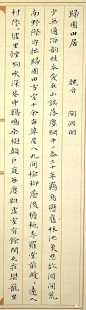 歸園田居 魏晉 陶淵明
少無適俗韻性本愛丘山誤落塵網中一去三十年羈鳥戀舊林池魚思故淵開荒
南野際守拙歸園田方宅十餘畝草屋八九間榆柳蔭後簷桃李羅堂前曖〻遠人
村依〻墟里煙狗吠深巷中雞鳴桑樹顛戶庭無塵雜虛室有餘閒久在樊籠里